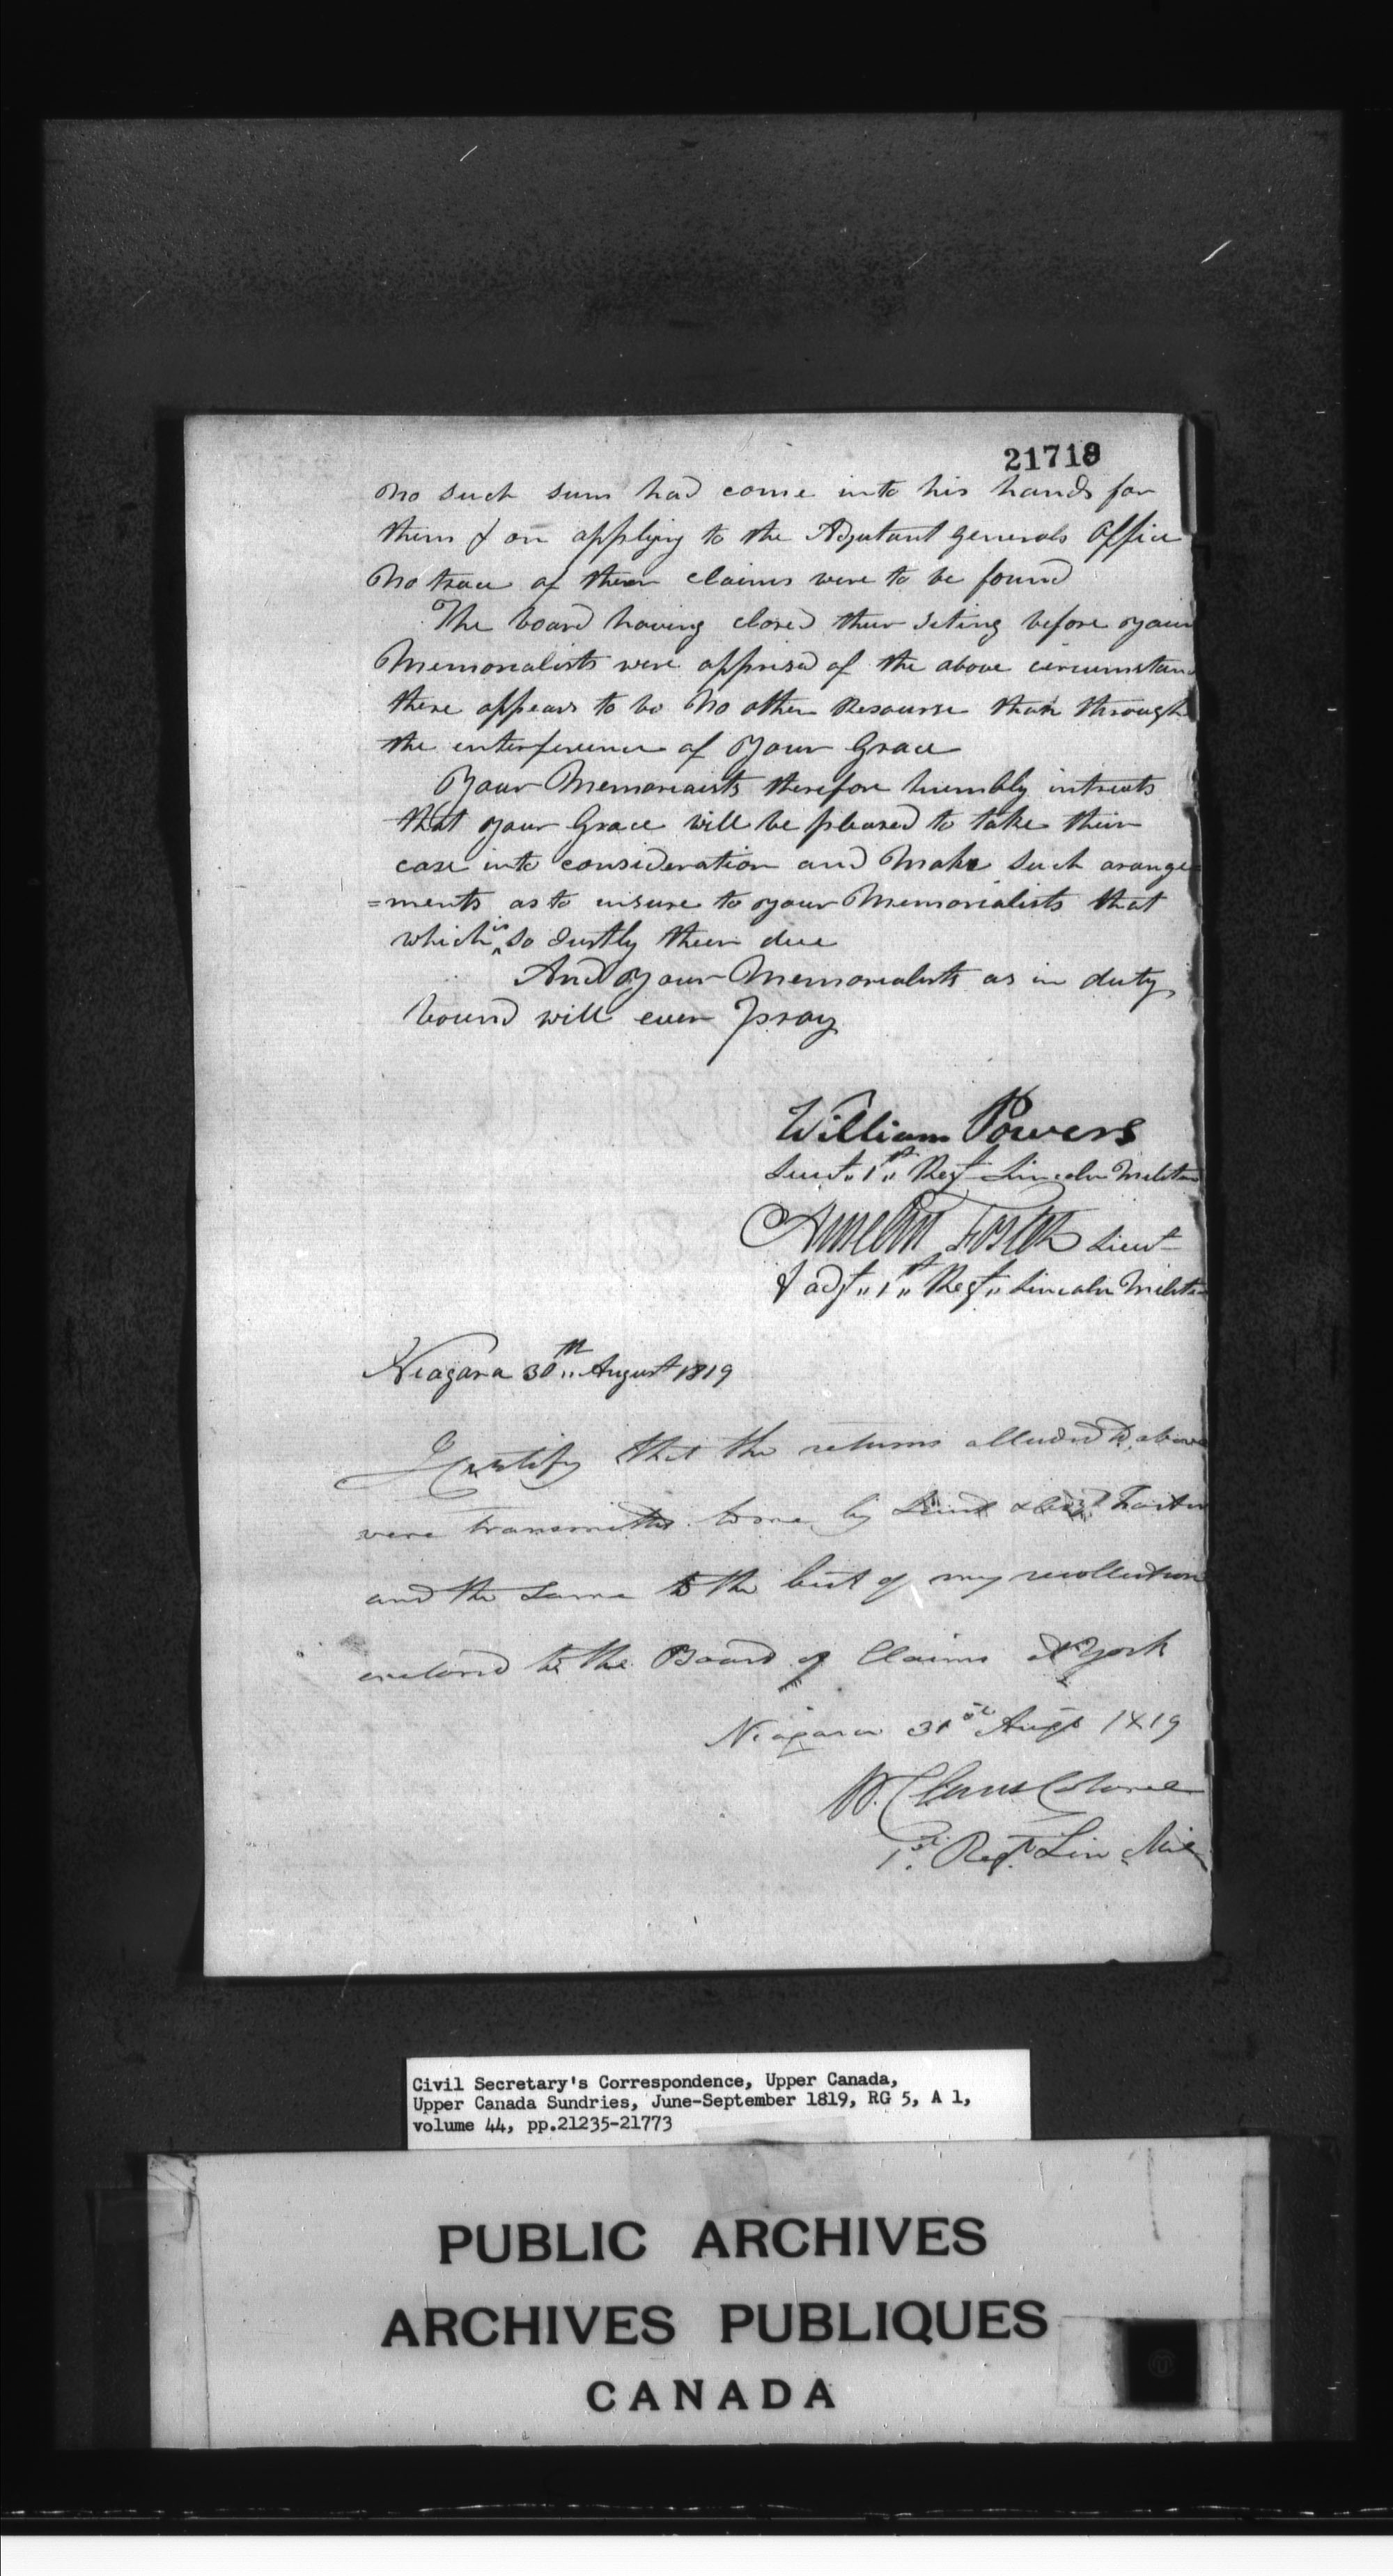 21718
No such sum had come into his hands for
them & on applying to the Adjutant generals Office
No trace of their claims were to be found
The board having closed their seting before your
Memorialists were apprised of the above circumstan
there appears to be No other Resourse than through
the interference of Your Grace
Your Memorialists therefore humbly intreats
that your Grace will be pleased to take their
case into consideration and Make such arange
=ments as to insure to your Memorialists that
which is so Justly their due
And Your Memorialists as in duty
bound will ever Pray
William Powers
Lieut 1st Regt Lincoln Militia
Foster Lieut
& adjt 1st Regt Lincoln Militia
Niagara 30th August 1819
I Certify that the returns alluded to above
were transmitted to me by Lieut & Foster
and the same to the best of my recollection
enclosed to the Board of Claims at York
Niagara 31st Augt 1819
W. Claus Colonel
1st Regt Lin Mil
Civil Secretary's Correspondence, Upper Canada,
Upper Canada Sundries, June-September 1819, RG 5, A 1,
volume 44, pp.21235-21773
PUBLIC ARCHIVES
ARCHIVES PUBLIQUES
CANADA